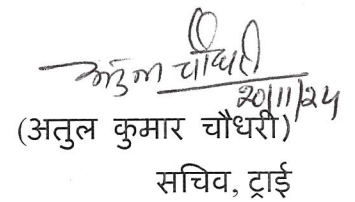 अतुल चौधरी
20/11/24
(अतुल कुमार चौधरी)
सचिव, ट्राई